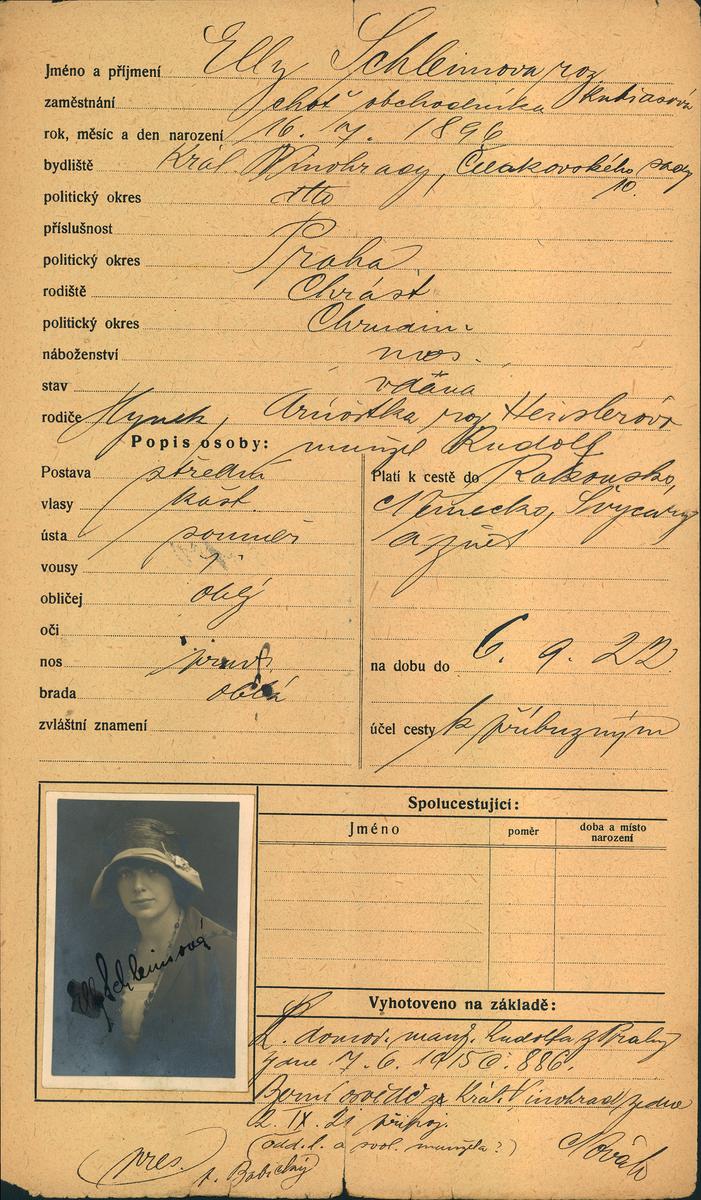 Jméno a příjmení Elly Schleimova roz. Kubiasová
zaměstnání choť obchodníka
rok, měsíc a den narození 16. 7. 1896
bydliště Král. Vinohrady, Čelakovského sady 10.
politický okres dtto
příslušnost
politický okres Praha
rodiště Chrást
politický okres Chrudim
náboženství mos.
stav vdána
rodiče Hynek, Arnoštka roz. Heislerová
Popis osoby: manžel Rudolf
Postava střední
vlasy kašt.
ústa souměr
vousy
obličej oblý
oči
nos
brada oblá
zvláštní znamení
Platí k cestě do Rakouska,
Německo, Švýcary
a zpět
na dobu do 6. 9. 22
účel cesty k příbuzným
Spolucestující:
Jméno poměr doba a místo narození
Elly Schleimsová
Vyhotoveno na základě:
domov. manž. Rudolfa z Prahy
ze dne 7. 6. 1915 č. 886.
Berní osvědč. z Král. Vinohrad ze dne
2. IX. 21 připoj.
(odd. l. a svol. manžela?)
Novák
pres.